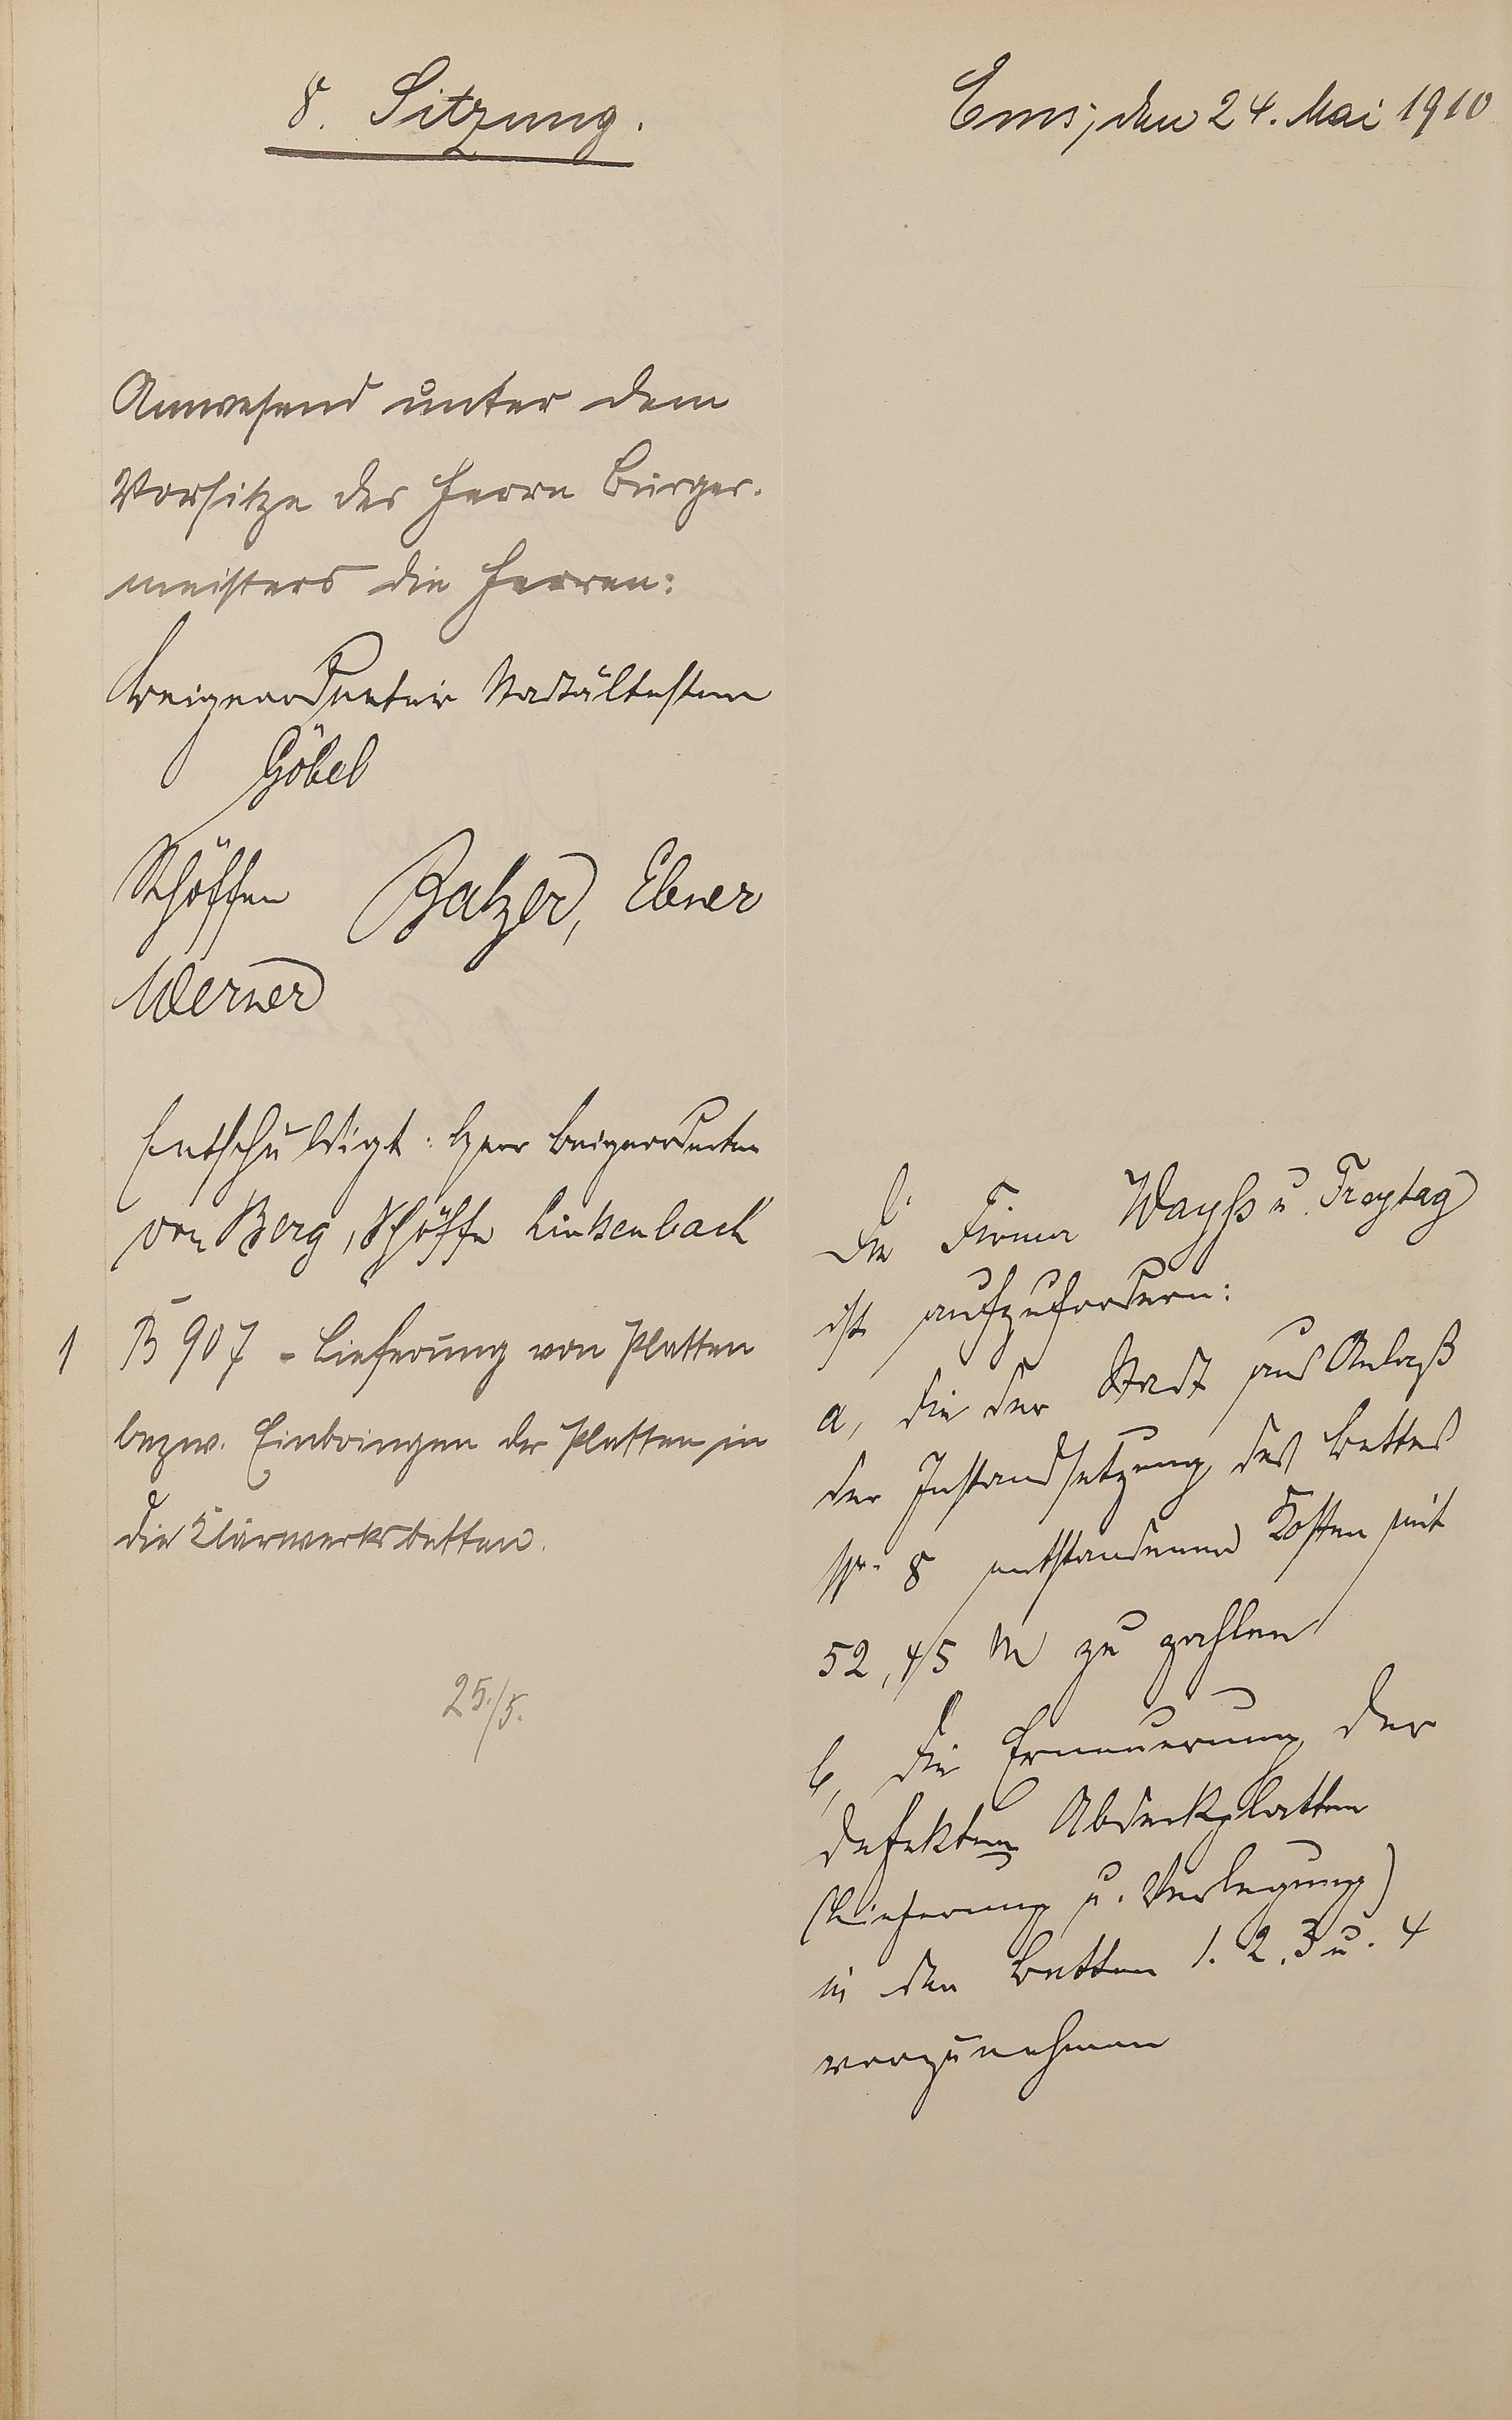 8. Sitzung.
Ems, den 24. Mai 1910
Anwesend unter dem
Vorsitze des Herrn Bürger-
meisters die Herren:
Beigeordneter Stadtältesten
Göbel
Schöffen Balzer, Ebner
Werner
Entschuldigt: Herr Beigeordneter
von Berg, Schöffe Linkenbach
1 B 907 - Lieferung von Platten
bezw. Einbringen der Platten in
die Klärwerksbetten.
25./5.
Die Firma Wayß u. Freytag
ist aufzufordern:
a, die der Stadt aus Anlaß
der Instandsetzung des Bettes
Nr. 8 entstandenen Kosten mit
52,45 M zu zahlen
b, die Erneuerung der
defekten Abdeckplatten
(Lieferung u. Verlegung)
in den Betten 1. 2. 3 u. 4
vorzunehmen